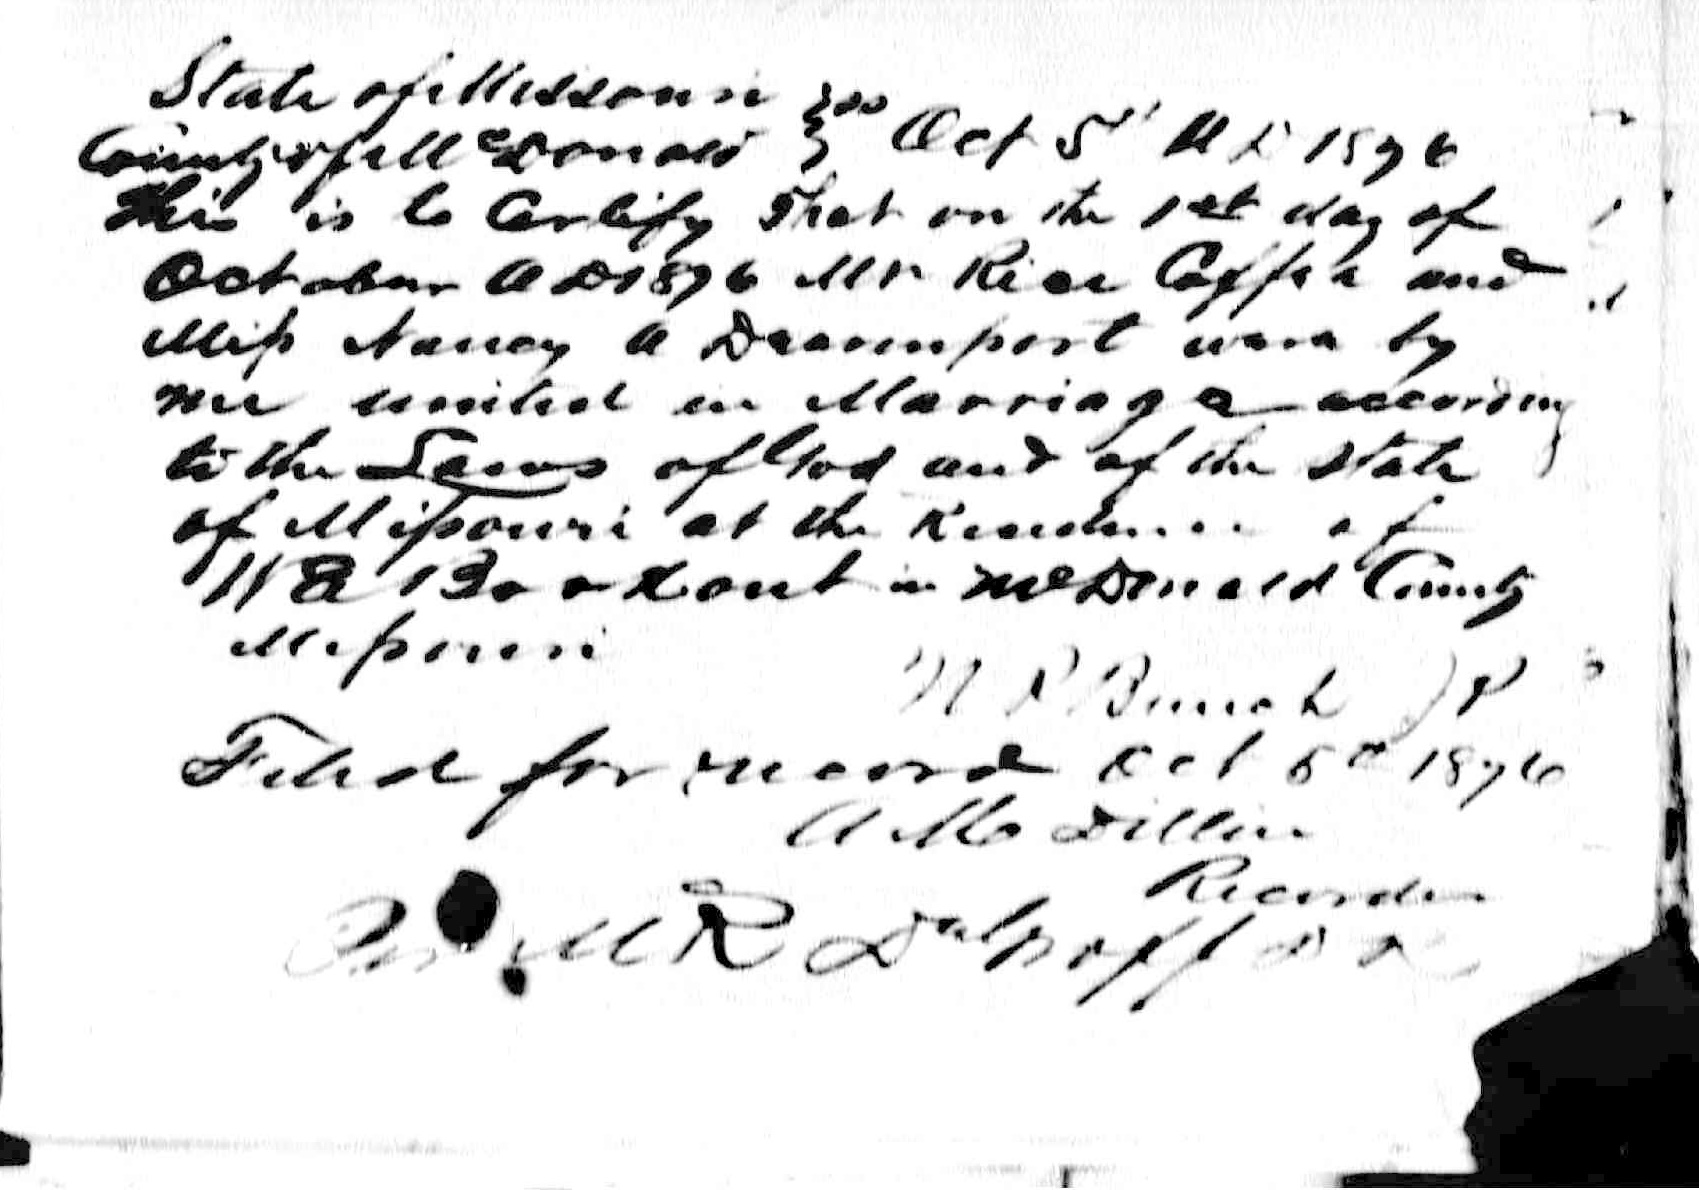 State of Missouri } ss Oct 5th A D 1876
County of McDonald
This is to Certify That on the 1st day of
October A D 1876 Mr Rice Coffee and
Miss Nancy A Davenport were by
me united in Marriage according
to the Laws of God and of the State
of Missouri at the Residence of
W B Bookout in McDonald County
Missouri
N P Bunch J P
Filed for record Oct 5th 1876
A M Dillin
Recorder
Per M R DeGroff D R